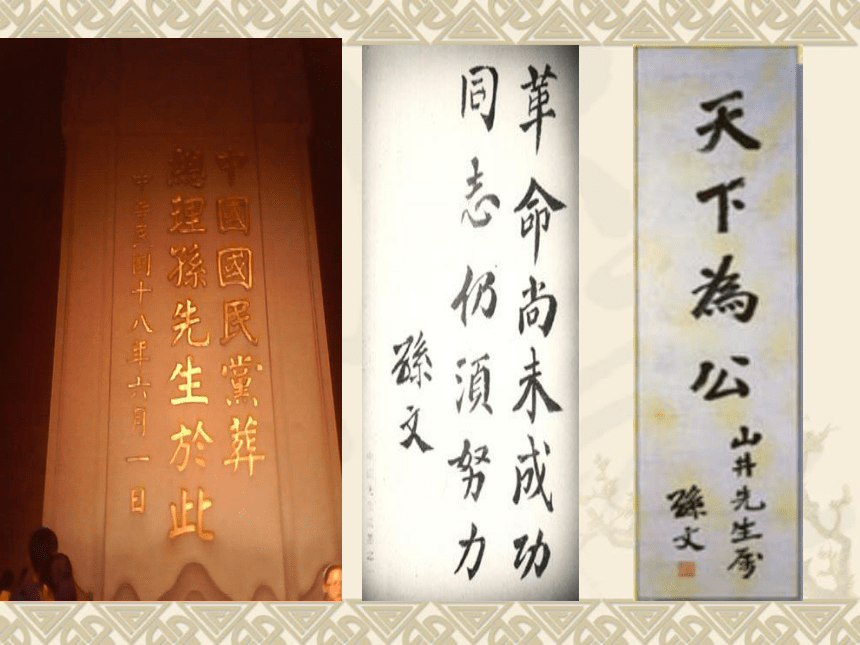 中國國民黨葬
總理孫先生於此
中華民國十八年六月一日
革命尚未成功
同志仍須努力
孫文
天下為公
山井先生属
孫文